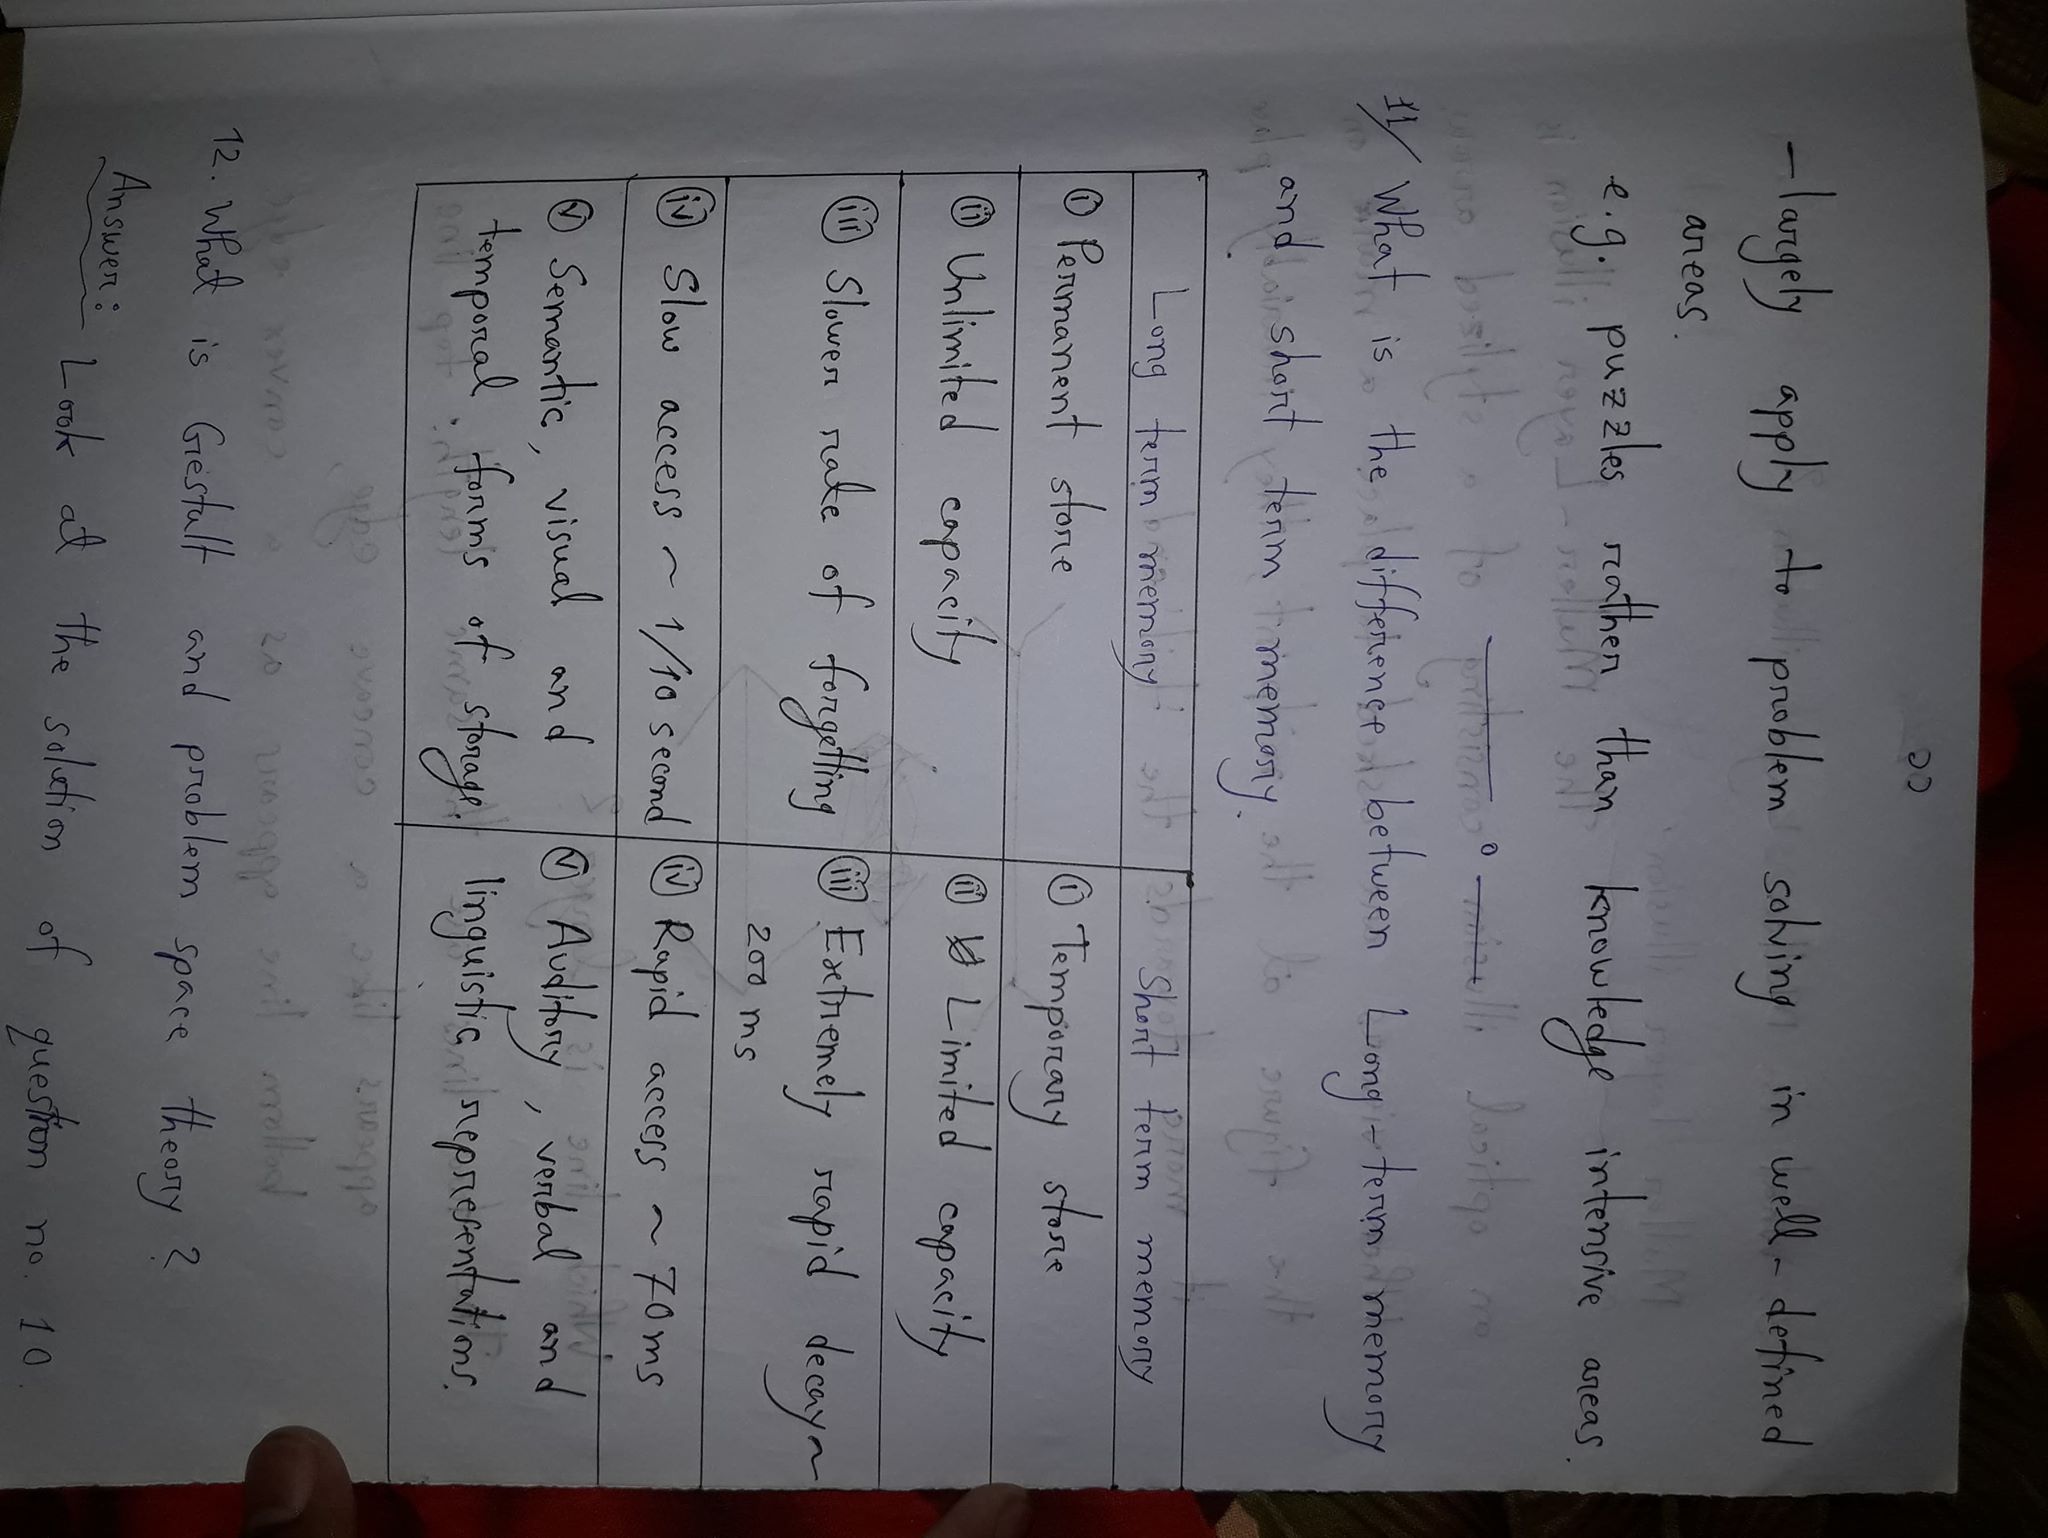 – largely apply to problem solving in well-defined
areas.
e.g. puzzles rather than knowledge intensive areas.
11/ What is the difference between Long-term memory
and short term memory.
Long term memory
Short term memory
i Permanent store
i Temporary store
ii Unlimited capacity
ii Limited capacity
iii Slower rate of forgetting
iii Extremely rapid decay ~
200 ms
iv Slow access ~ 1/10 second
iv Rapid access ~ 70ms
v Semantic, visual and
temporal forms of storage.
v Auditory, verbal and
linguistic representations.
12. What is Gestalt and problem space theory?
Answer: Look at the solution of question no. 10.